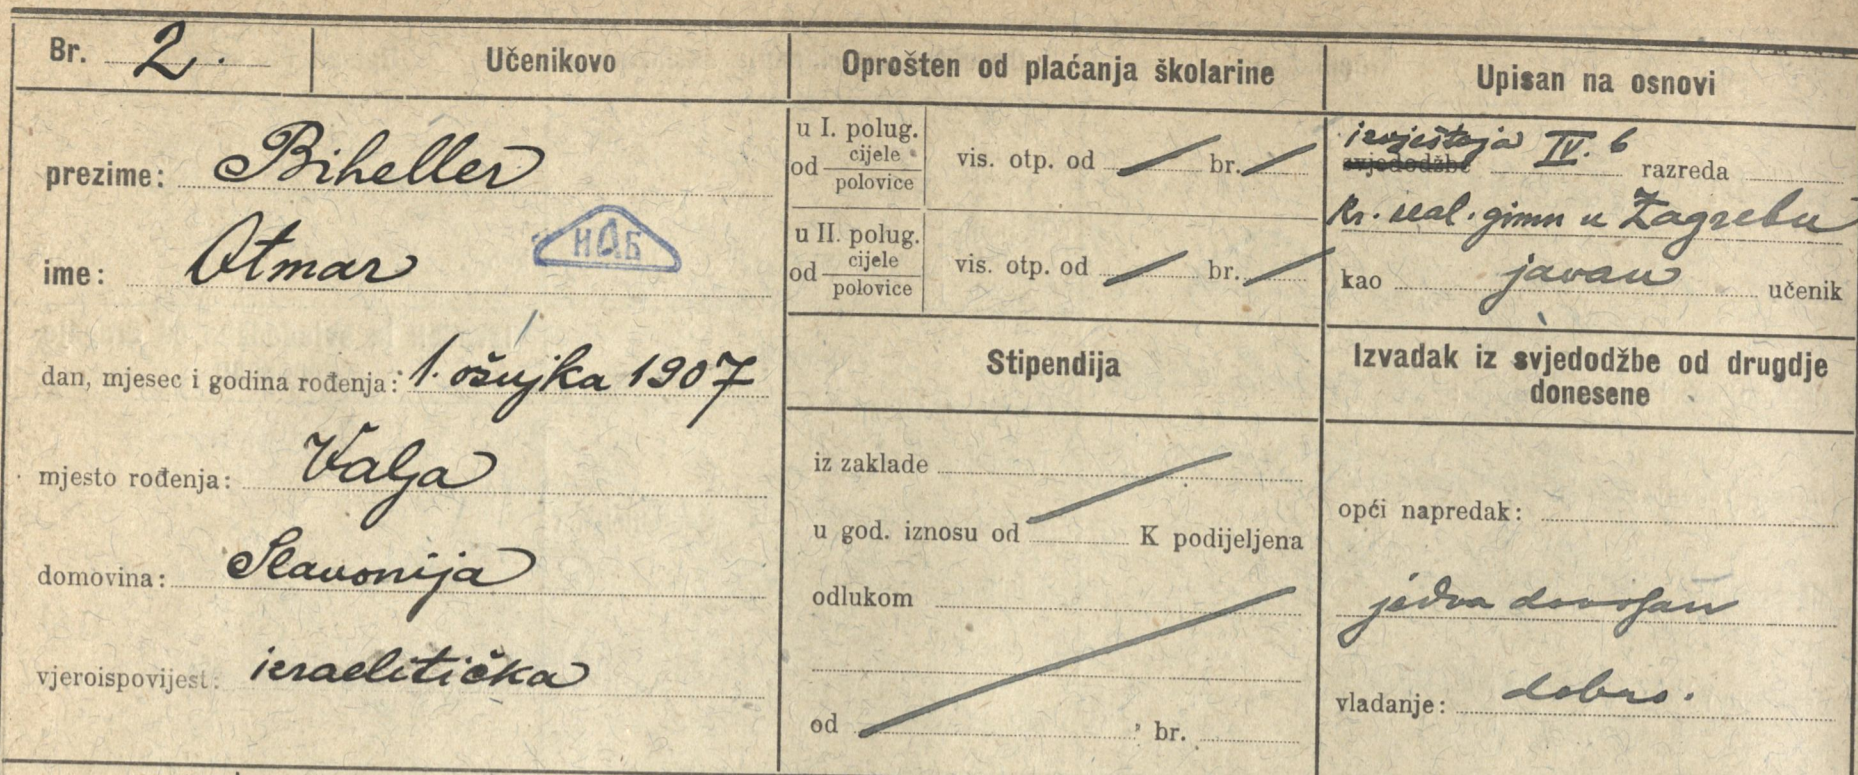 Br. 2.
Učenikovo
prezime: Biheller
ime: Otmar
НДБ
dan, mjesec i godina rođenja: 1. ožujka 1907
mjesto rođenja: Valja
domovina: Slavonija
vjeroispovijest: izraelitička
Oprošten od plaćanja školarine
u I. polug.
od cijele
polovice
vis. otp. od br.
u II. polug.
od cijele
polovice
vis. otp. od br.
Stipendija
iz zaklade
u god. iznosu od K podijeljena
odlukom
od br.
Upisan na osnovi
izvještaja IV. b
svjedodžbe razreda
Kr. real. gimn u Zagrebu
kao javan učenik
Izvadak iz svjedodžbe od drugdje
donesene
opći napredak:
jedva dovoljan
vladanje: dobro.